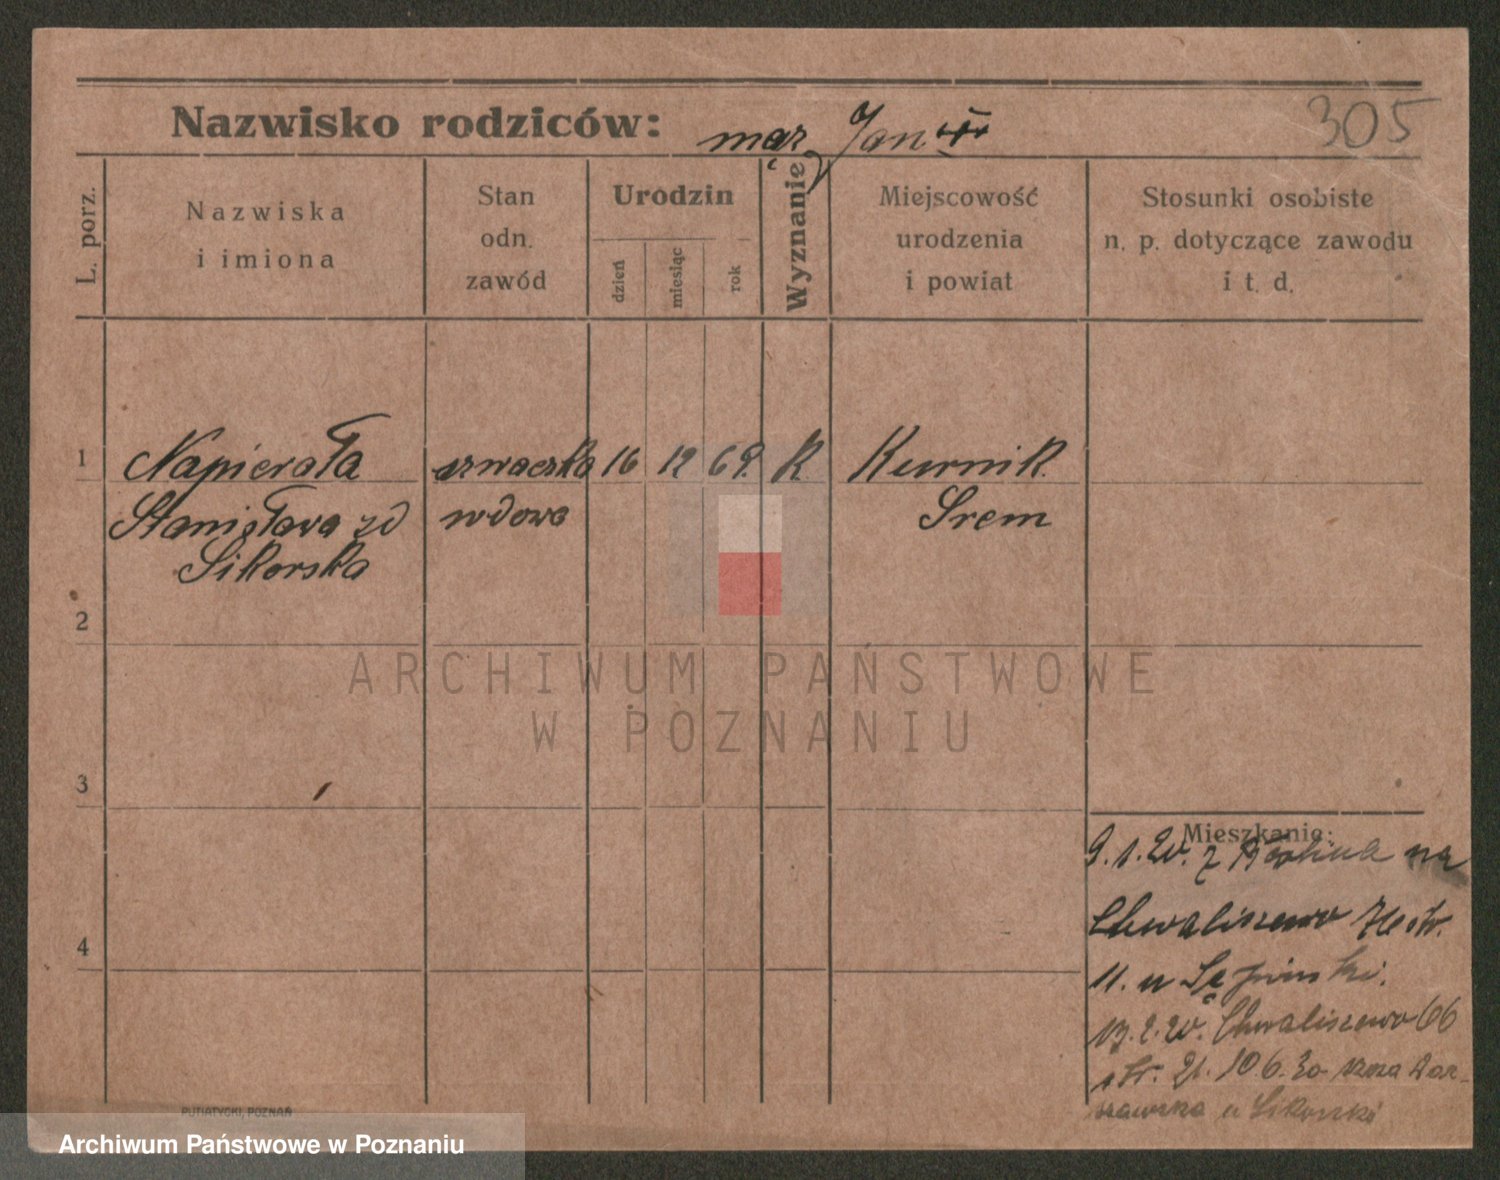 305
Nazwisko rodziców: mąż Jan
L. porz.
Nazwiska
i imiona
Stan
odn.
zawód
Urodzin
dzień
miesiąc
rok
Wyznanie
Miejscowość
urodzenia
i powiat
Stosunki osobiste
n. p. dotyczące zawodu
i t. d.
1
Napierała
Stanisława zd
Sikorska
szwaczka
wdowa
16
12
69.
K.
Kurnik.
Srem
2
ARCHIWUM PAŃSTWOWE
W POZNANIU
3
4
Mieszkanie:
9.1.20. z na
Chwaliszewo
11. u
13.2.20. Chwaliszewo 66
21. 10.6.30 szosa War-
szawska u Sikorski
PUTIATYCKI, POZNAŃ
Archiwum Państwowe w Poznaniu